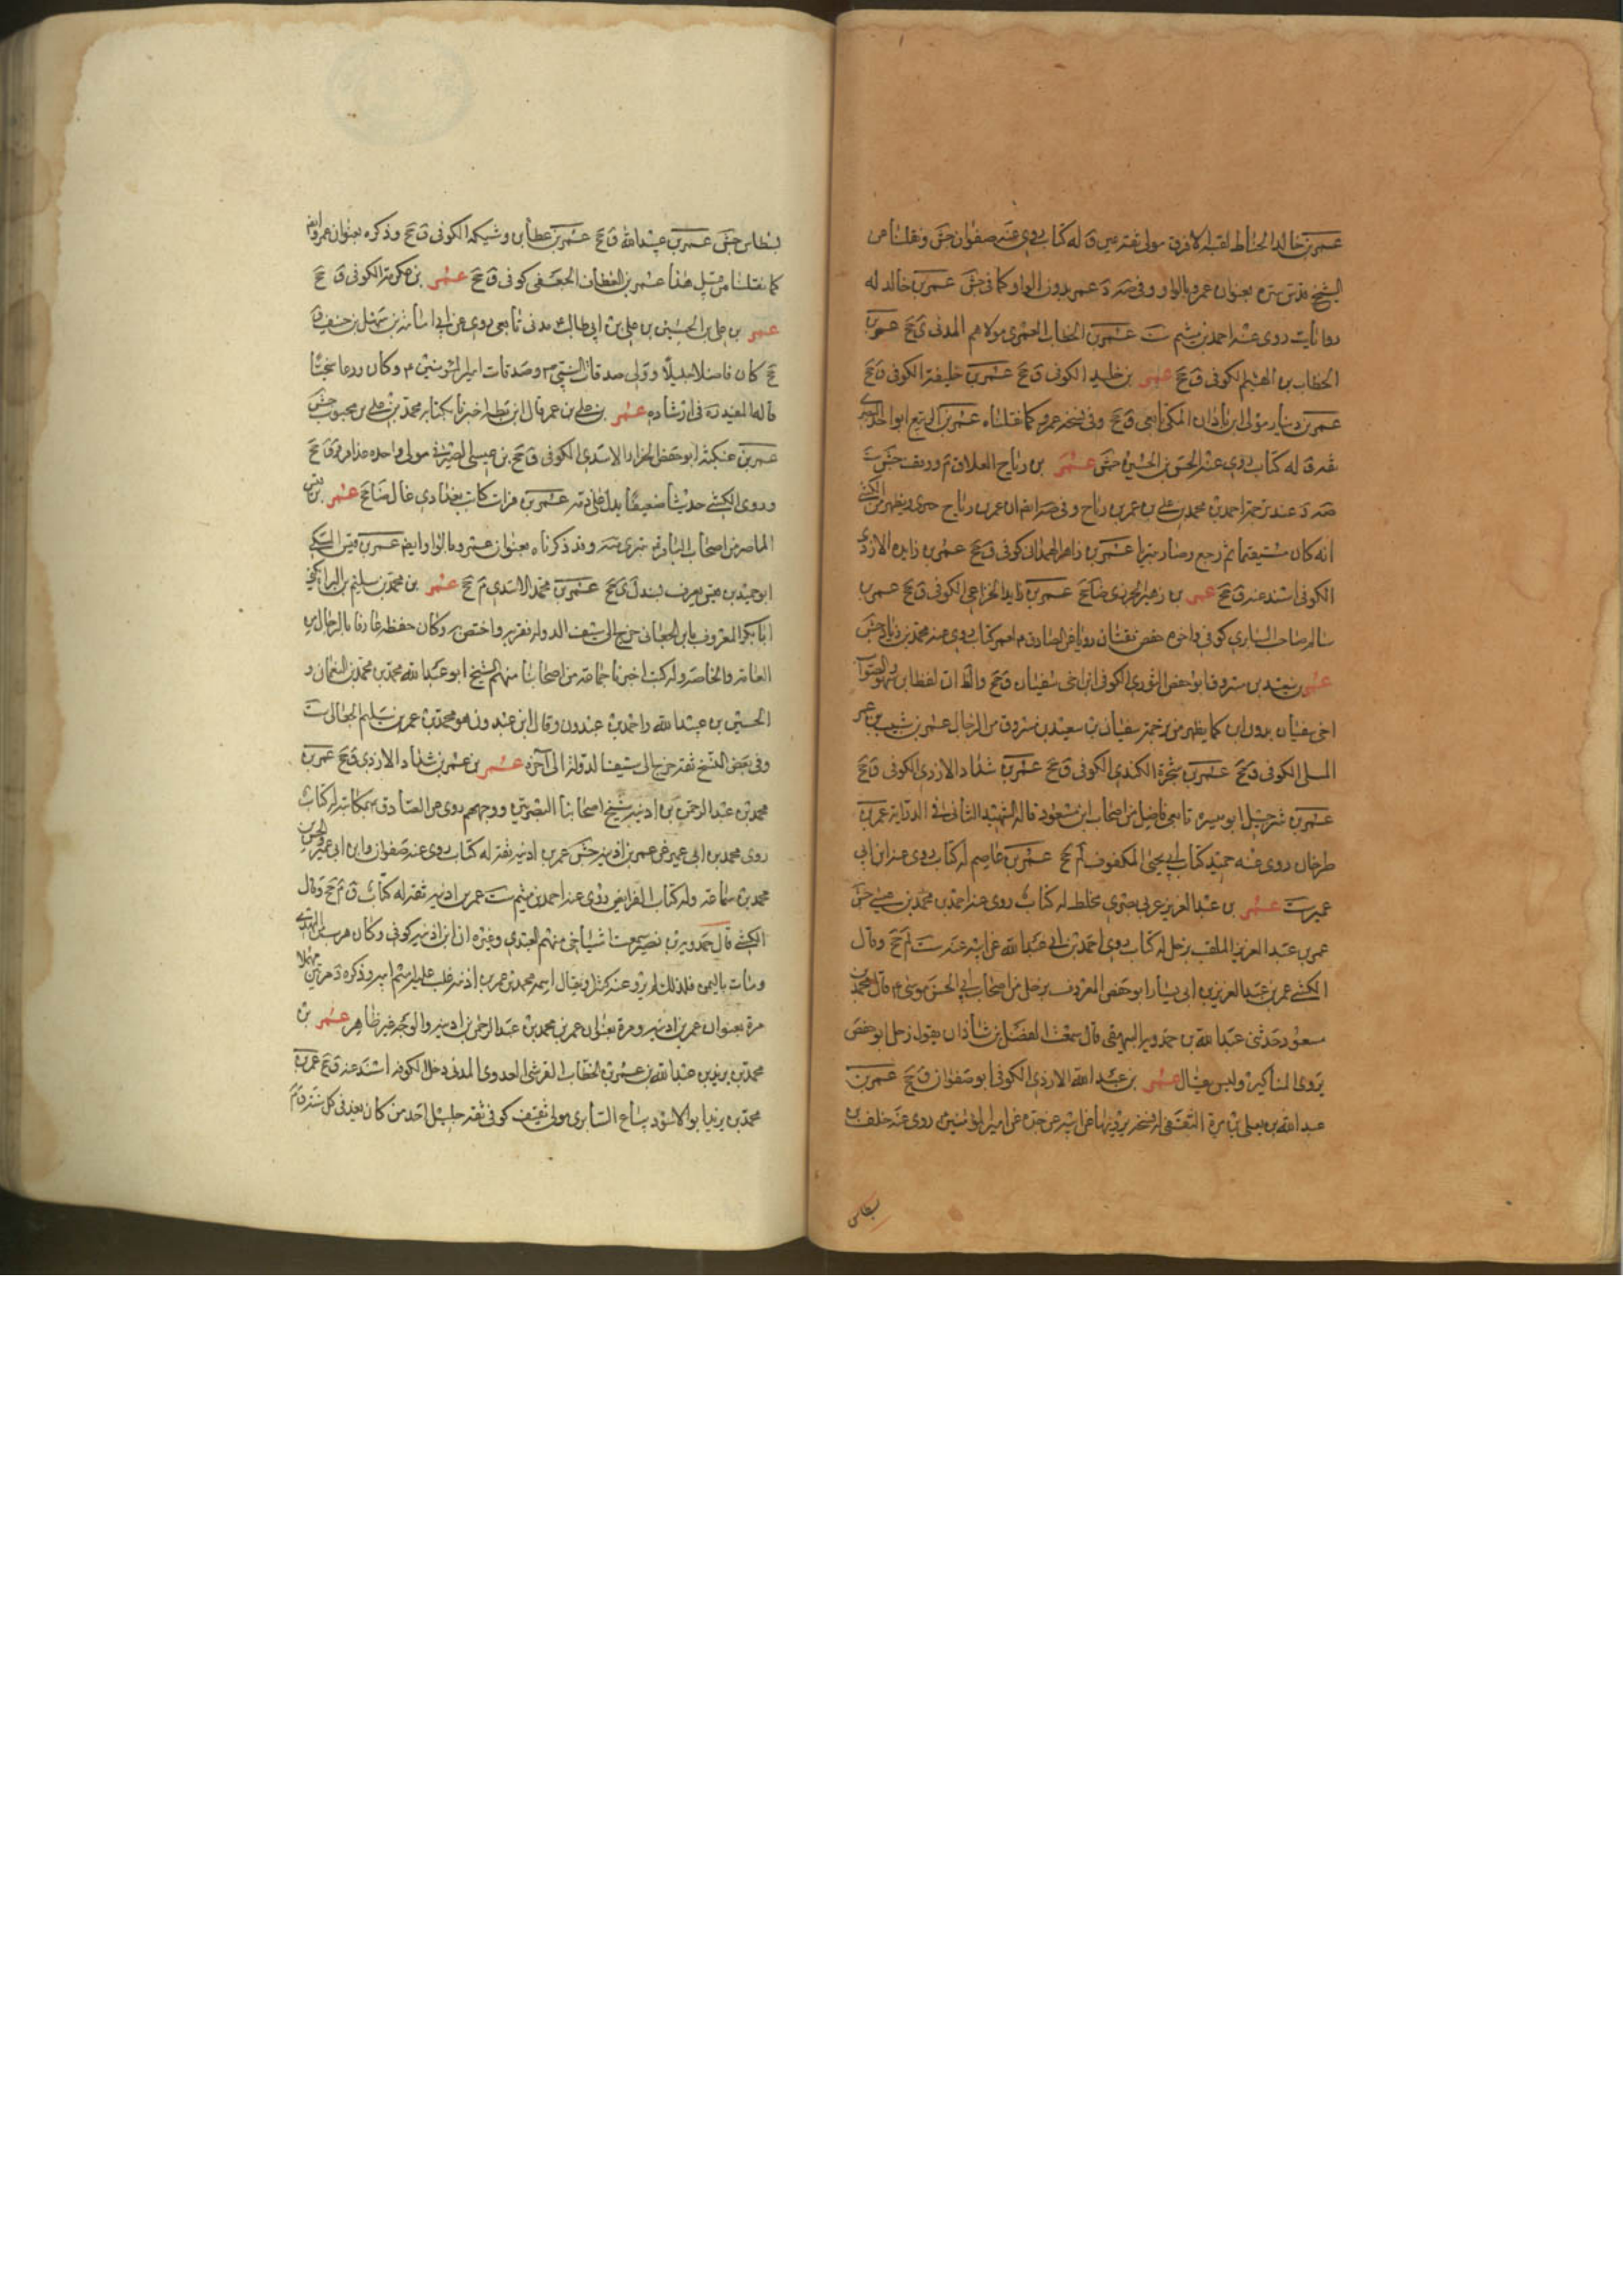 عمر بن خالد الحناط لقبه الافرق مولى ثقة عين ق له كتاب روى عنه صفوان جش ونقلنا من
الشيخ قدس سره بعنوان عمرو بالواو وفى ضه د عمر بدون الواو كما فى جش عمر بن خالد له
روايات روى عنه احمد بن ميثم ست عمر بن الخطاب العمرى مولاهم المدنى ق جخ عمر بن
الخطاب بن الهيثم الكوفى ق جخ عمر بن خليد الكوفى ق جخ عمر بن خليفة الكوفى ق جخ
عمر بن دينار مولى ابن باذان المكى تابعى ق جخ وفى نسخة عمرو كما نقلناه عمر بن الربيع ابو احمد البصرى
ثقة ق له كتاب روى عنه الحسن بن الحسين جش عمر بن رياح القلاء ق م ووقف جش ست
عند ترجمة احمد بن محمد بن على بن عمر بن رياح وفى ايضا ان عمر بن رياح ويظهر من الكشى
انه كان مستقيما ثم رجع وصار بتريا عمر بن زاهر الهمدانى كوفى ق جخ عمر بن زايدة الازدى
الكوفى اسند عنه ق جخ عمر بن زهير الجزرى ضا جخ عمر بن زيد الخزاعى الكوفى ق جخ عمر بن
سالم صاحب السابرى كوفى واخوه حفص ثقتان رويا عن الصادق م لعمر كتاب روى عنه محمد بن زياد جش
عمر بن سعيد بن مسروق ابو حفص الثورى الكوفى ابن اخى سفيان ق جخ والظ ان لفظ ابن سهو والصواب
اخى سفيان بدون ابن كما يظهر من ترجمة سفيان بن سعيد بن مسروق من الرجال عمر بن شبيب بن عمر
المسلى الكوفى ق جخ عمر بن شجرة الكندى الكوفى ق جخ عمر بن شداد الازدى الكوفى ق جخ
عمر بن شرحبيل ابو ميسرة تابعى فاضل من اصحاب ابن مسعود قاله الشهيد الثانى فى الدراية عمر بن
طرخان روى عنه حميد كتاب ابى يحيى المكفوف لم جخ عمر بن عاصم له كتاب روى عنه ابن ابى
عمير ست عمر بن عبد العزيز عربى بصرى مخلط له كتاب روى عنه احمد بن محمد بن عيسى جش
عمر بن عبد العزيز الملقب بزحل له كتاب روى احمد بن ابى عبد الله عن ابيه عنه ست لم جخ وقال
الكشى عمر بن عبد العزيز بن ابى بشار ابو حفص المعروف بزحل من اصحاب ابى الحسن موسى م قال محمد بن
مسعود حدثنى عبد الله بن حمدويه البيهقى قال سمعت الفضل بن شاذان يقول زحل ابو حفص
يروى المناكير وليس بغال عمر بن عبد الله الازدى الكوفى ابو صفوان ق جخ عمر بن
عبد الله بن يعلى بن مرة الثقفى له نسخة يرويها عن ابيه عن جده عن امير المؤمنين روى عنه خلف بن
بسطاس
بسطاس جش عمر بن عبيد الله ق جخ عمر بن عطا بن وشيكة الكوفى ق جخ وذكره بعنوان عمرو ايض
كما نقلنا من قبل هذا عمر بن العطان الجعفى كوفى ق جخ عمر بن عكرمة الكوفى ق جخ
عمر بن على بن الحسين بن على بن ابى طالب مدنى تابعى روى عن ابى امامة بن سهل بن حنيف ق
جخ كان فاضلا جليلا وولى صدقات النبى ص وصدقات امير المؤمنين م وكان ورعا سخيا
قاله المفيد ره فى ارشاده عمر بن على بن عمر قال ابن بطة اخبرنا بكتابه محمد بن على بن محبوب جش
عمر بن عنكثة ابو حفص الخزاز الاسدى الكوفى ق جخ بن عيسى الصيرفى مولى واحده مذافر ق جخ
وروى الكشى حديثا ضعيفا يدل على ذمه عمر بن فرات كاتب بغدادى غال ضا جخ عمر بن قيس
الماصر من اصحاب الباقر م بترى ضه وقد ذكرناه بعنوان عمرو بالواو ايض عمر بن قيس المكى
ابو حميد بن قيس يعرف بسندل ق جخ عمر بن محمد الاسدى م جخ عمر بن محمد بن سليم بن البراء يكنى
ابا بكر المعروف بابن الجعابى خرج الى سيف الدولة فقربه واختص به وكان حفظة عارفا بالرجال من
العامة والخاصة وله كتب اخبرنا جماعة من اصحابنا منهم الشيخ ابو عبد الله محمد بن محمد بن النعمان و
الحسين بن عبيد الله واحمد بن عبدون وقال ابن عبدون هو محمد بن عمر بن سليم الجعابى ست
وفى بعض النسخ ثقة خرج الى سيف الدولة الى آخره عمر بن عمر بن شداد الازدى ق جخ عمر بن
محمد بن عبد الرحمن بن اذينة شيخ اصحابنا البصريين ووجههم روى عن الصادق م بمكاتبة له كتاب
روى محمد بن ابى عمير عن عمر بن اذينة جش عمر بن اذينة ثقة له كتاب روى عنه صفوان وابن ابى عمير والحسن بن
محمد بن سماعة وله كتاب الفرايض روى عنه احمد بن ميثم ست عمر بن اذينة ثقة له كتاب ق م جخ وقال
الكشى قال حمدويه بن نصير سمعت اشياخى منهم العبيدى وغيره ان ابن اذينة كوفى وكان هرب من المهدى
ومات باليمن فلذلك لم يرو عنه كثير ويقال اسمه محمد بن عمر بن اذينة غلب عليه اسم ابيه وذكره د مرتين
مرة بعنوان عمر بن اذينة ومرة بعنوان عمر بن محمد بن عبد الرحمن بن اذينة والوجه غير ظاهر عمر بن
محمد بن يزيد بن عبد الله بن عمر بن الخطاب القرشى العدوى المدنى دخل الكوفة اسند عنه ق جخ عمر بن
محمد بن يزيد ابو الاسود بياع السابرى مولى ثقيف كوفى ثقة جليل احد من كان يفد فى كل سنة ق م